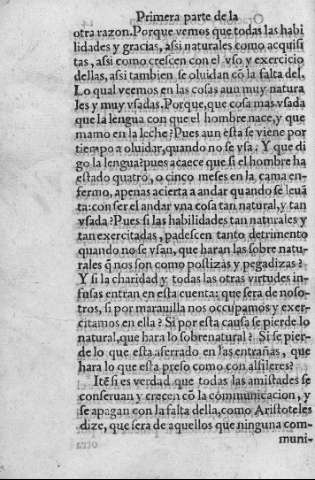 Primera parte de la
otra razon. Porque vemos que todas las habi
lidades y gracias, assi naturales como acquisi
tas, assi como crescen con el vso y exercicio
dellas, assi tambien se oluidan cõ la falta del.
Lo qual veemos en las cosas aun muy natura
les y muy vsadas. Porque, que cosa mas vsada
que la lengua con que el hombre nace, y que
mamo en la leche? Pues aun esta se viene por
tiempo a oluidar, quando no se vsa. Y que di
go la lengua? pues acaece que si el hombre ha
estado quatro, o cinco meses en la cama en-
fermo, apenas acierta a andar quando se leuã
ta: con ser el andar vna cosa tan natural, y tan
vsada? Pues si las habilidades tan naturales y
tan exercitadas, padescen tanto detrimento
quando no se vsan, que haran las sobre natu-
rales q̃ nos son como postizas y pegadizas?
Y si la charidad y todas las otras virtudes in-
fusas entran en esta cuenta: que sera de noso-
tros, si por marauilla nos occupamos y exer-
citamos en ella? Si por esta causa se pierde lo
natural, que hara lo sobrenatural? Si se pier-
de lo que esta aferrado en las entrañas, que
hara lo que esta preso como con alfileres?
Itẽ si es verdad que todas las amistades se
conseruan y crecen cõ la communicacion, y
se apagan con la falta della, como Aristoteles
dize, que sera de aquellos que ninguna com-
muni-